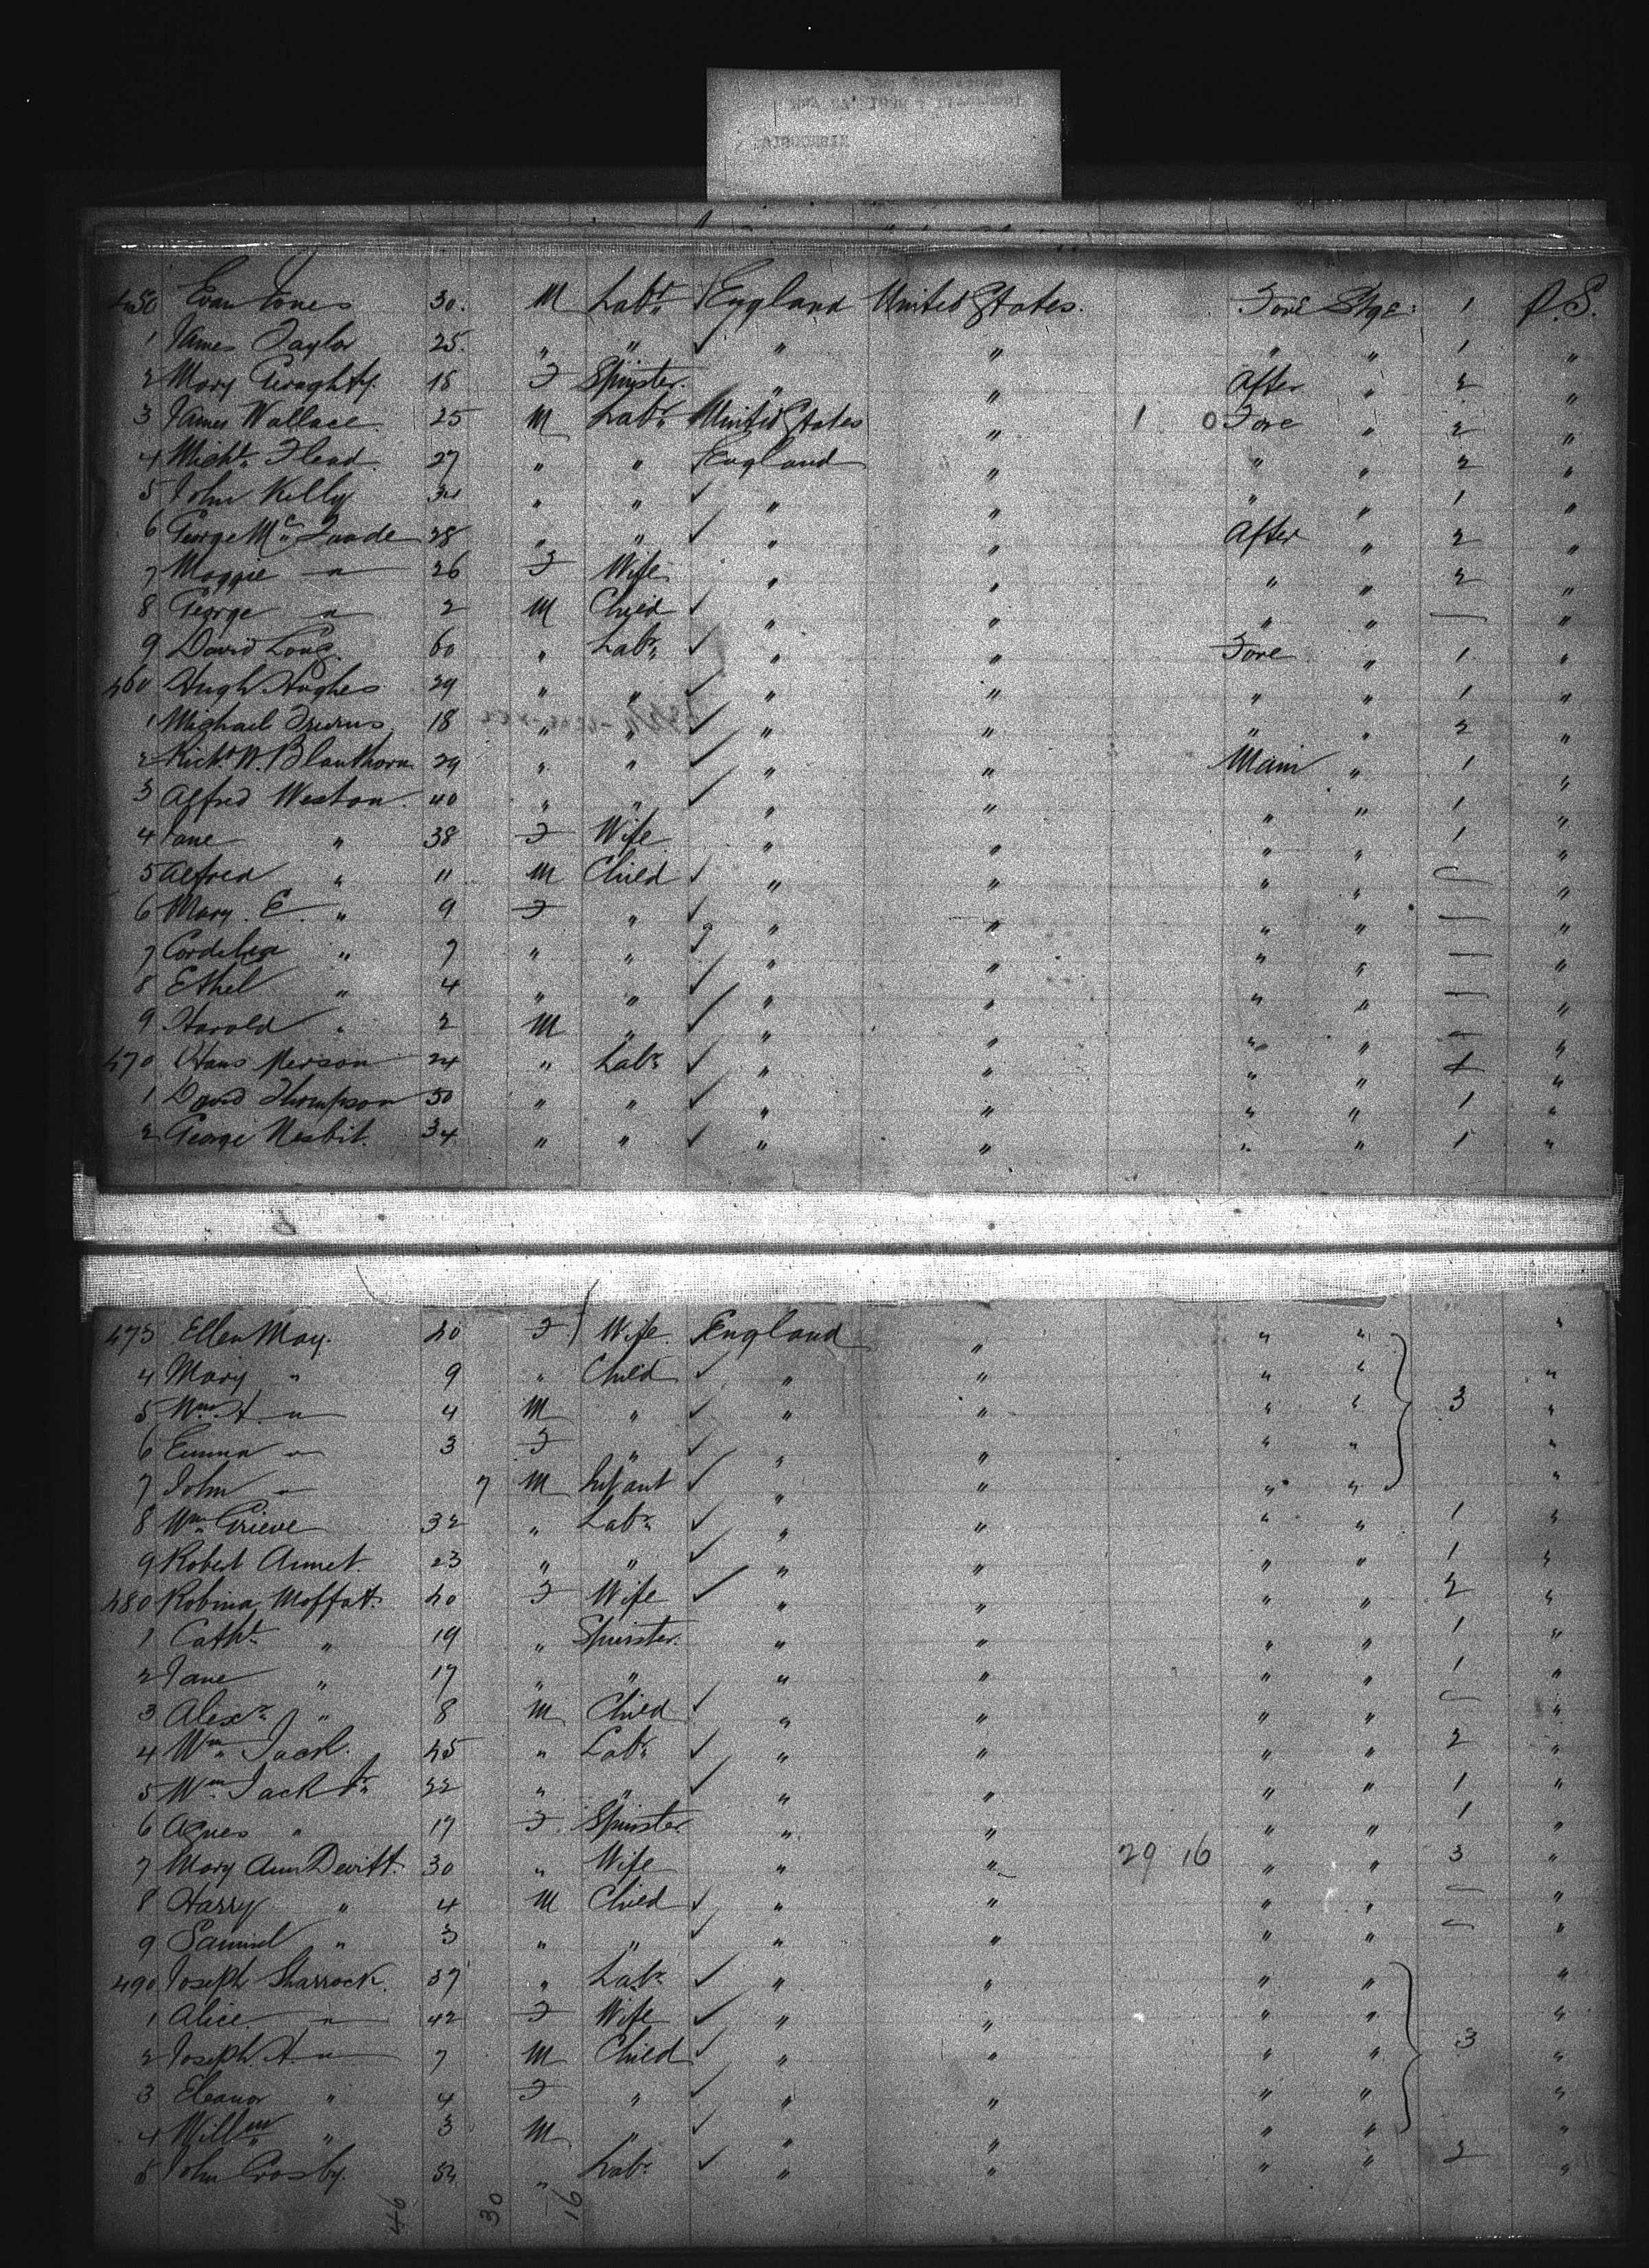 450 Evan Jones 30. M Labr England United States. Fore Stge: 1 P.S.
1 James Taylor 25. " " " " " " 1 "
2 Mary Geraghty. 18 F Spinster. " " After " 2 "
3 James Wallace. 25 M Labr United States " 1 0 Fore " 2 "
4 Michl. Flead. 27 " " England " " " 2 "
5 John Kelly " " " " " " 1 "
6 George Mc Quade 28 " " " " After " 2 "
7 Maggie " 26 F Wife " " " " 2 "
8 George " 2 M Child " " " " — "
9 David Long. 60 " Labr " " Fore " 1 "
460 Hugh Hughes 29 " " " " " " 1 "
1 Michael 18 " " " " " " 2 "
2 Richd. W. Blanthorn. 29 " " " " Main " 1 "
3 Alfred Weston. 40 " " " " " " 1 "
4 Jane " 38 F Wife " " " " 1 "
5 Alfred " 11 M Child " " " " — "
6 Mary. E. " 9 F " " " " " — "
7 Cordelia " 7 " " " " " " — "
8 Ethel " 4 " " " " " " — "
9 Harold " 2 M " " " " " — "
470 Hans Merson 24 " Labr " " " " 1 "
1 David Thompson 50 " " " " " " 1 "
2 George Nesbit. 34 " " " " " " 1 "
473 Ellen May. 40 F Wife. England " " " "
4 Mary " 9 " Child " " " " "
5 Wm. A. " 4 M " " " " " 3 "
6 Emma " 3 F " " " " " "
7 John " 7 M Infant " " " " "
8 Wm. Grieve 32 " Labr " " " " 1 "
9 Robert Annet. 23 " " " " " " 1 "
480 Robina Moffat. 40 F Wife " " " " 2 "
1 Cathe. " 19 " Spinster. " " " " 1 "
2 Jane " 17 " " " " " " 1 "
3 Alexr. " 8 M Child " " " " — "
4 Wm. Jack. 45 " Labr " " " " 2 "
5 Wm. Jack Jr. 22 " " " " " " 1 "
6 Agnes " 17 F Spinster " " " " 1 "
7 Mary Ann Devitt. 30 " Wife " " 29 16 " " 3 "
8 Harry " 4 M Child " " " " — "
9 Samuel " 3 " " " " " " — "
490 Joseph Sharrock. 37 " Labr " " " " "
1 Alice. " 42 F Wife " " " " "
2 Joseph. A. " 7 M Child " " " " 3 "
3 Eleanor " 4 F " " " " " "
4 Willm " 3 M " " " " " "
5 John Crosby. " Labr " " " " 2 "
46 30 16